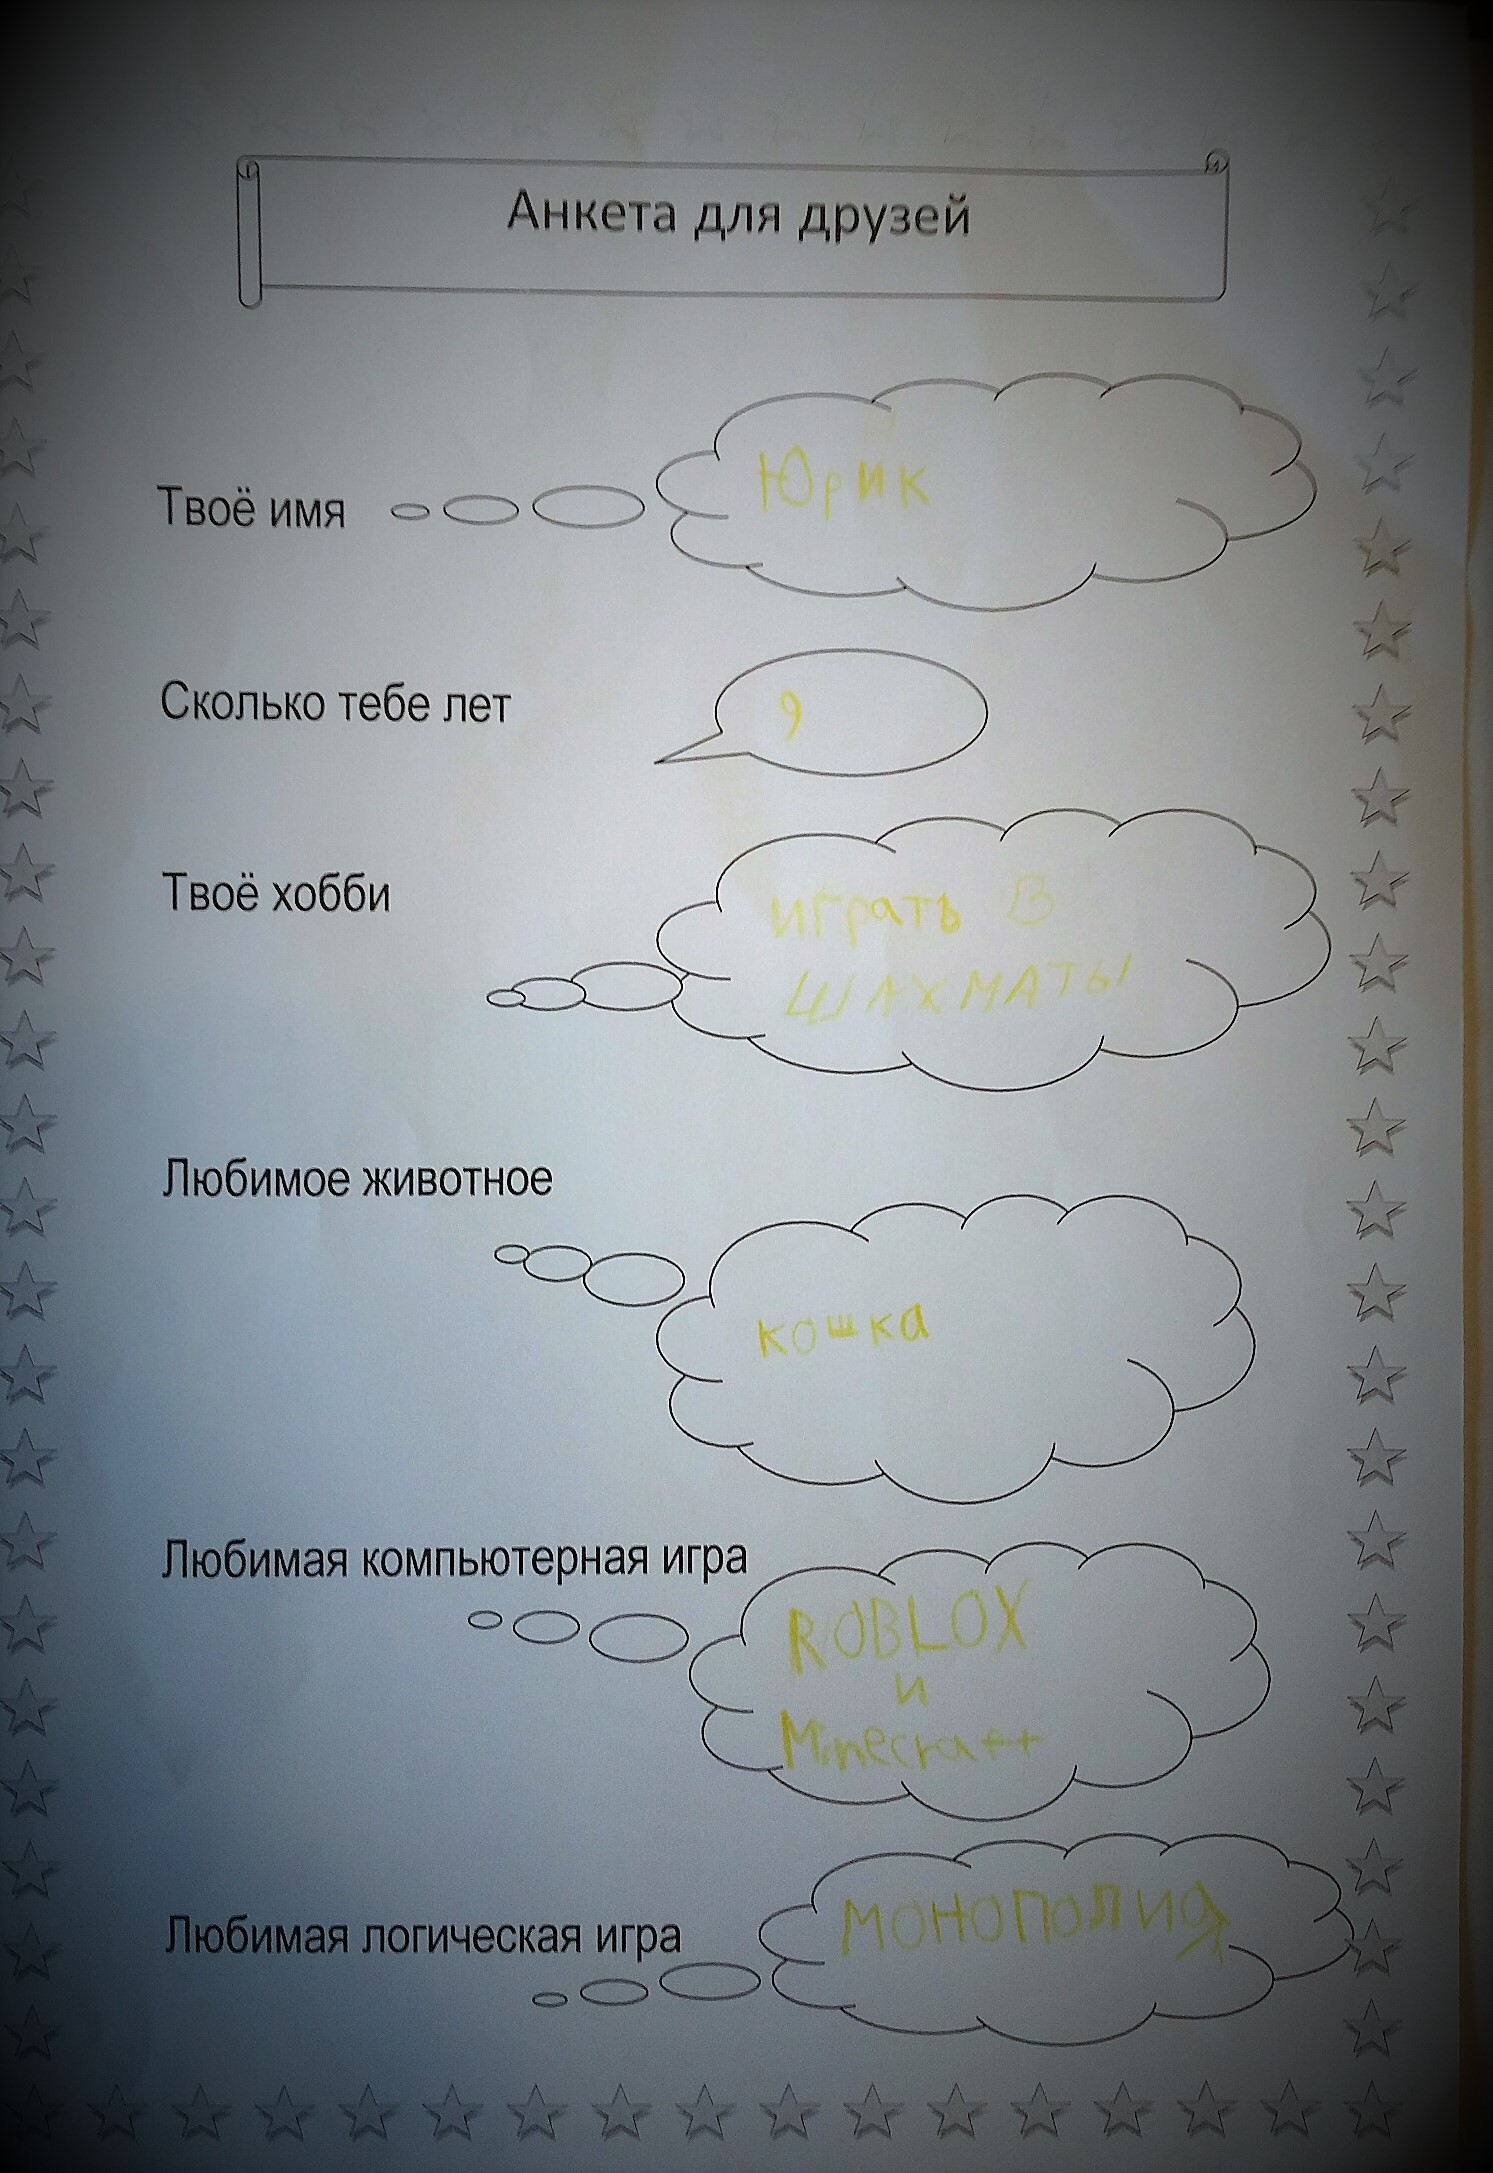 Анкета для друзей
Твоё имя
Юрик
Сколько тебе лет
9
Твоё хобби
играть в
ШАХМАТЫ
Любимое животное
кошка
Любимая компьютерная игра
ROBLOX
и
Minecraft
Любимая логическая игра
МОНОПОЛИЯ